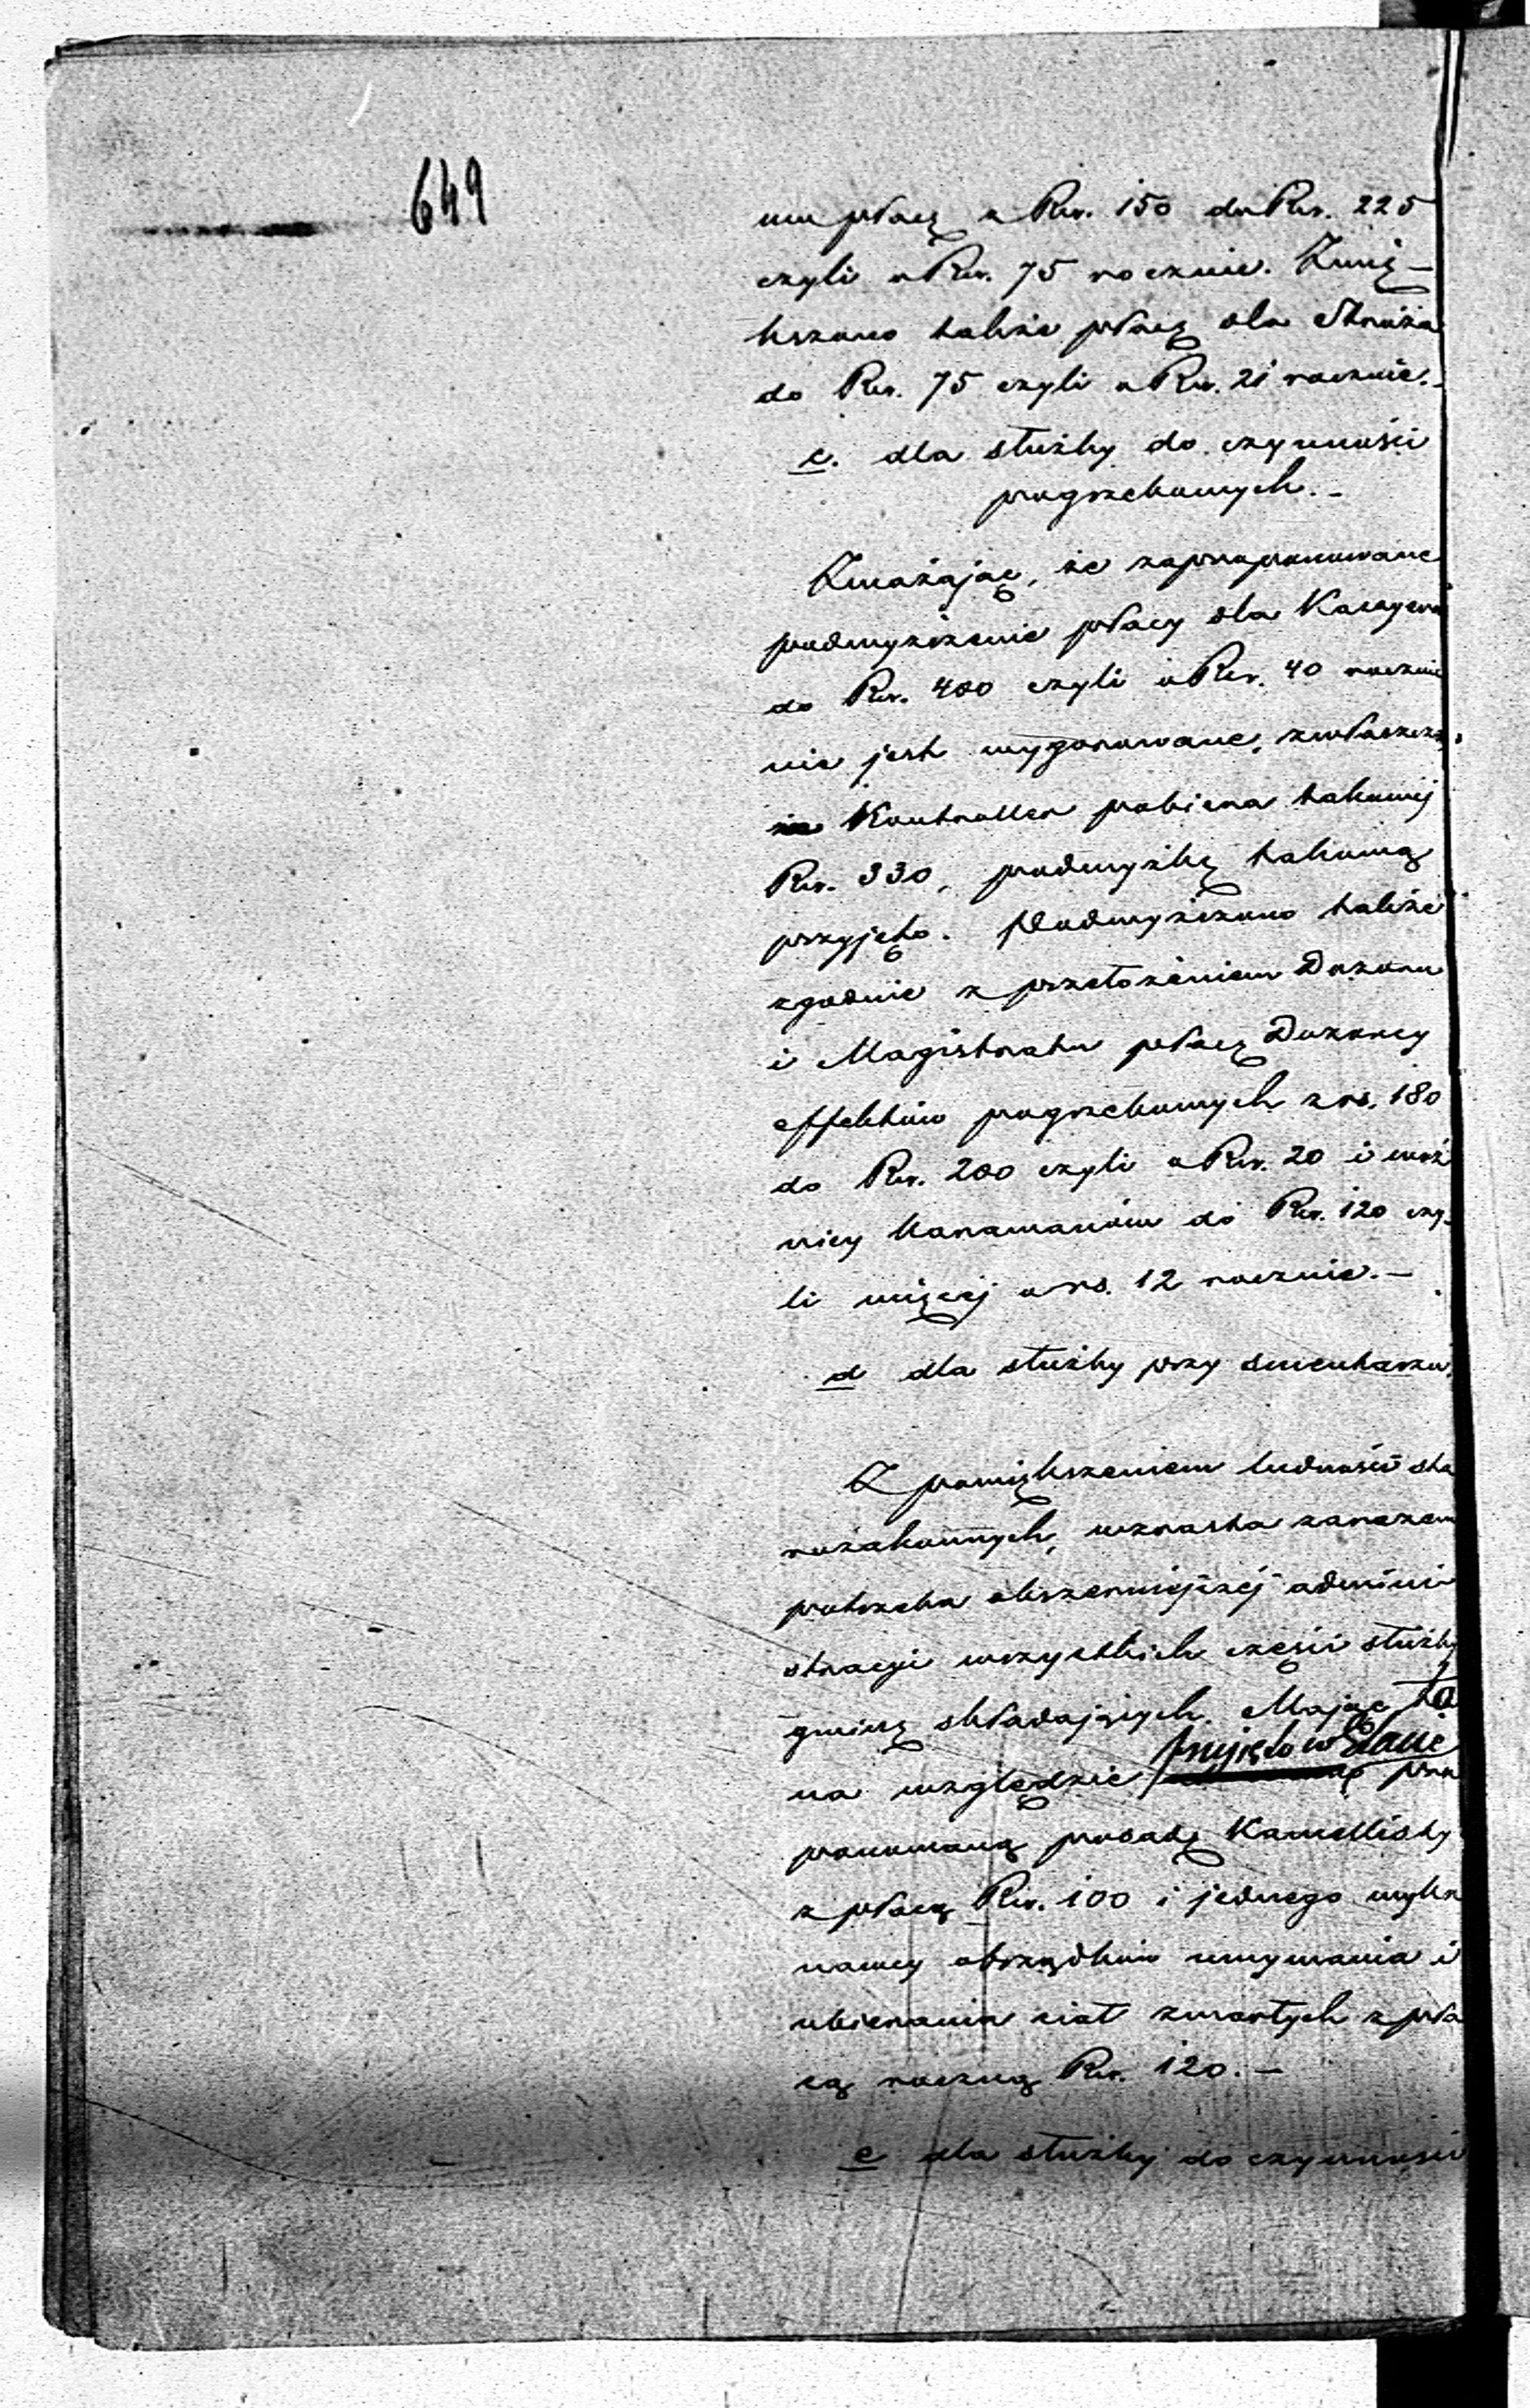 649
mu płacę z Rsr. 150 do Rsr. 225
czyli o Rsr. 75 rocznie. Zwię-
kszono także płacę dla Stróża
do Rsr. 75 czyli o Rsr. 21 rocznie.-
c. dla służby do czynności
pogrzebowych.-
Zważając, że zaproponowane
podwyższenie płacy dla Kassyera
do Rsr. 400 czyli o Rsr. 40 rocznie
nie jest wygórowane, zwłaszcza,
że Kontroller pobiera takowéj
Rsr. 330, podwyżkę takową
przyjęto. Podwyższono także
zgodnie z przełożeniem Dozoru
i Magistratu płacę Dozorcy
effektów pogrzebowych z rs. 180
do Rsr. 200 czyli o Rsr. 20 i woź
nicy karawanów do Rsr. 120 czy-
li więcéj o rs. 12 rocznie.-
d dla służby przy smentarzu.
Z powiększeniem ludności sta
rozakonnych, wzrasta zarazem
potrzeba obszerniejszéj admini
stracyi wszystkich części służby
gminę składających. Mając to
na względzie przyjęto w Etacie pro
ponowaną posadę Kancellisty
z płacą Rsr. 100 i jednego wyko
nawcy obrządków umywania i
ubierania ciał zmarłych z pła
cą roczną Rsr. 120.-
e dla służby do czynności